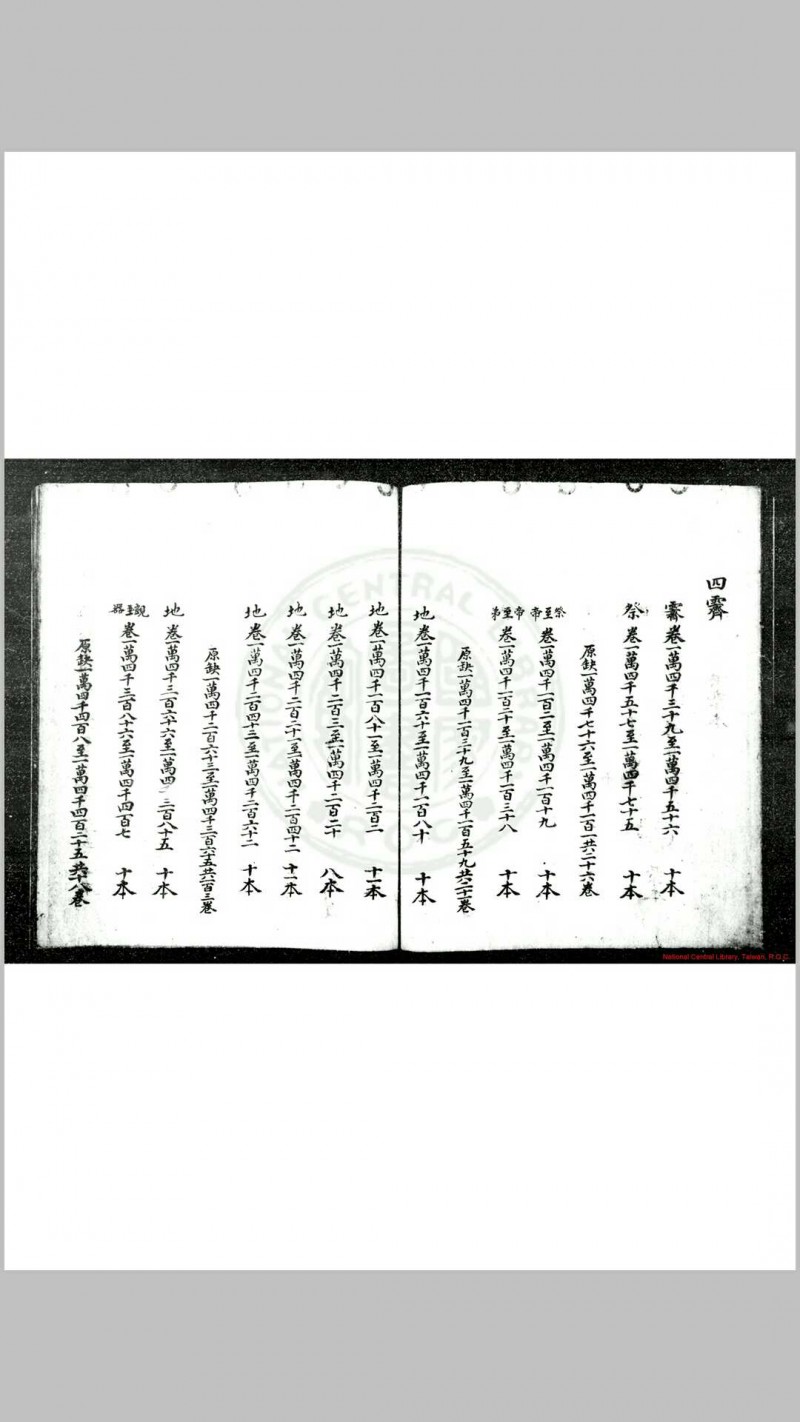 四霽
霽 卷一萬四千三十九至一萬四千五十六 十本
祭 卷一萬四千五十七至一萬四千七十五 十本
原缺一萬四千七十六至一萬四千一百一共二十六卷
祭至帝 卷一萬四千一百二至一萬四千一百十九 十本
帝至第 卷一萬四千一百二十至一萬四千一百三十八 十本
原缺一萬四千一百三十九至一萬四千一百五十九共二十一卷
地 卷一萬四千一百六十至一萬四千一百八十 十本
地 卷一萬四千一百八十一至一萬四千二百二 十一本
地 卷一萬四千二百三至一萬四千二百二十 八本
地 卷一萬四千二百二十一至一萬四千二百四十二 十一本
地 卷一萬四千二百四十三至一萬四千二百六十二 十本
原缺一萬四千二百六十三至一萬四千三百六十五共一百三卷
地 卷一萬四千三百六十六至一萬四 三百八十五 十本
卷一萬四千三百八十六至一萬四千四百七 十本
原缺一萬四千四百八至一萬四千四百二十五共十八卷
NATIONAL CENTRAL LIBRARY
R.O.C.
National Central Library, Taiwan, R.O.C.